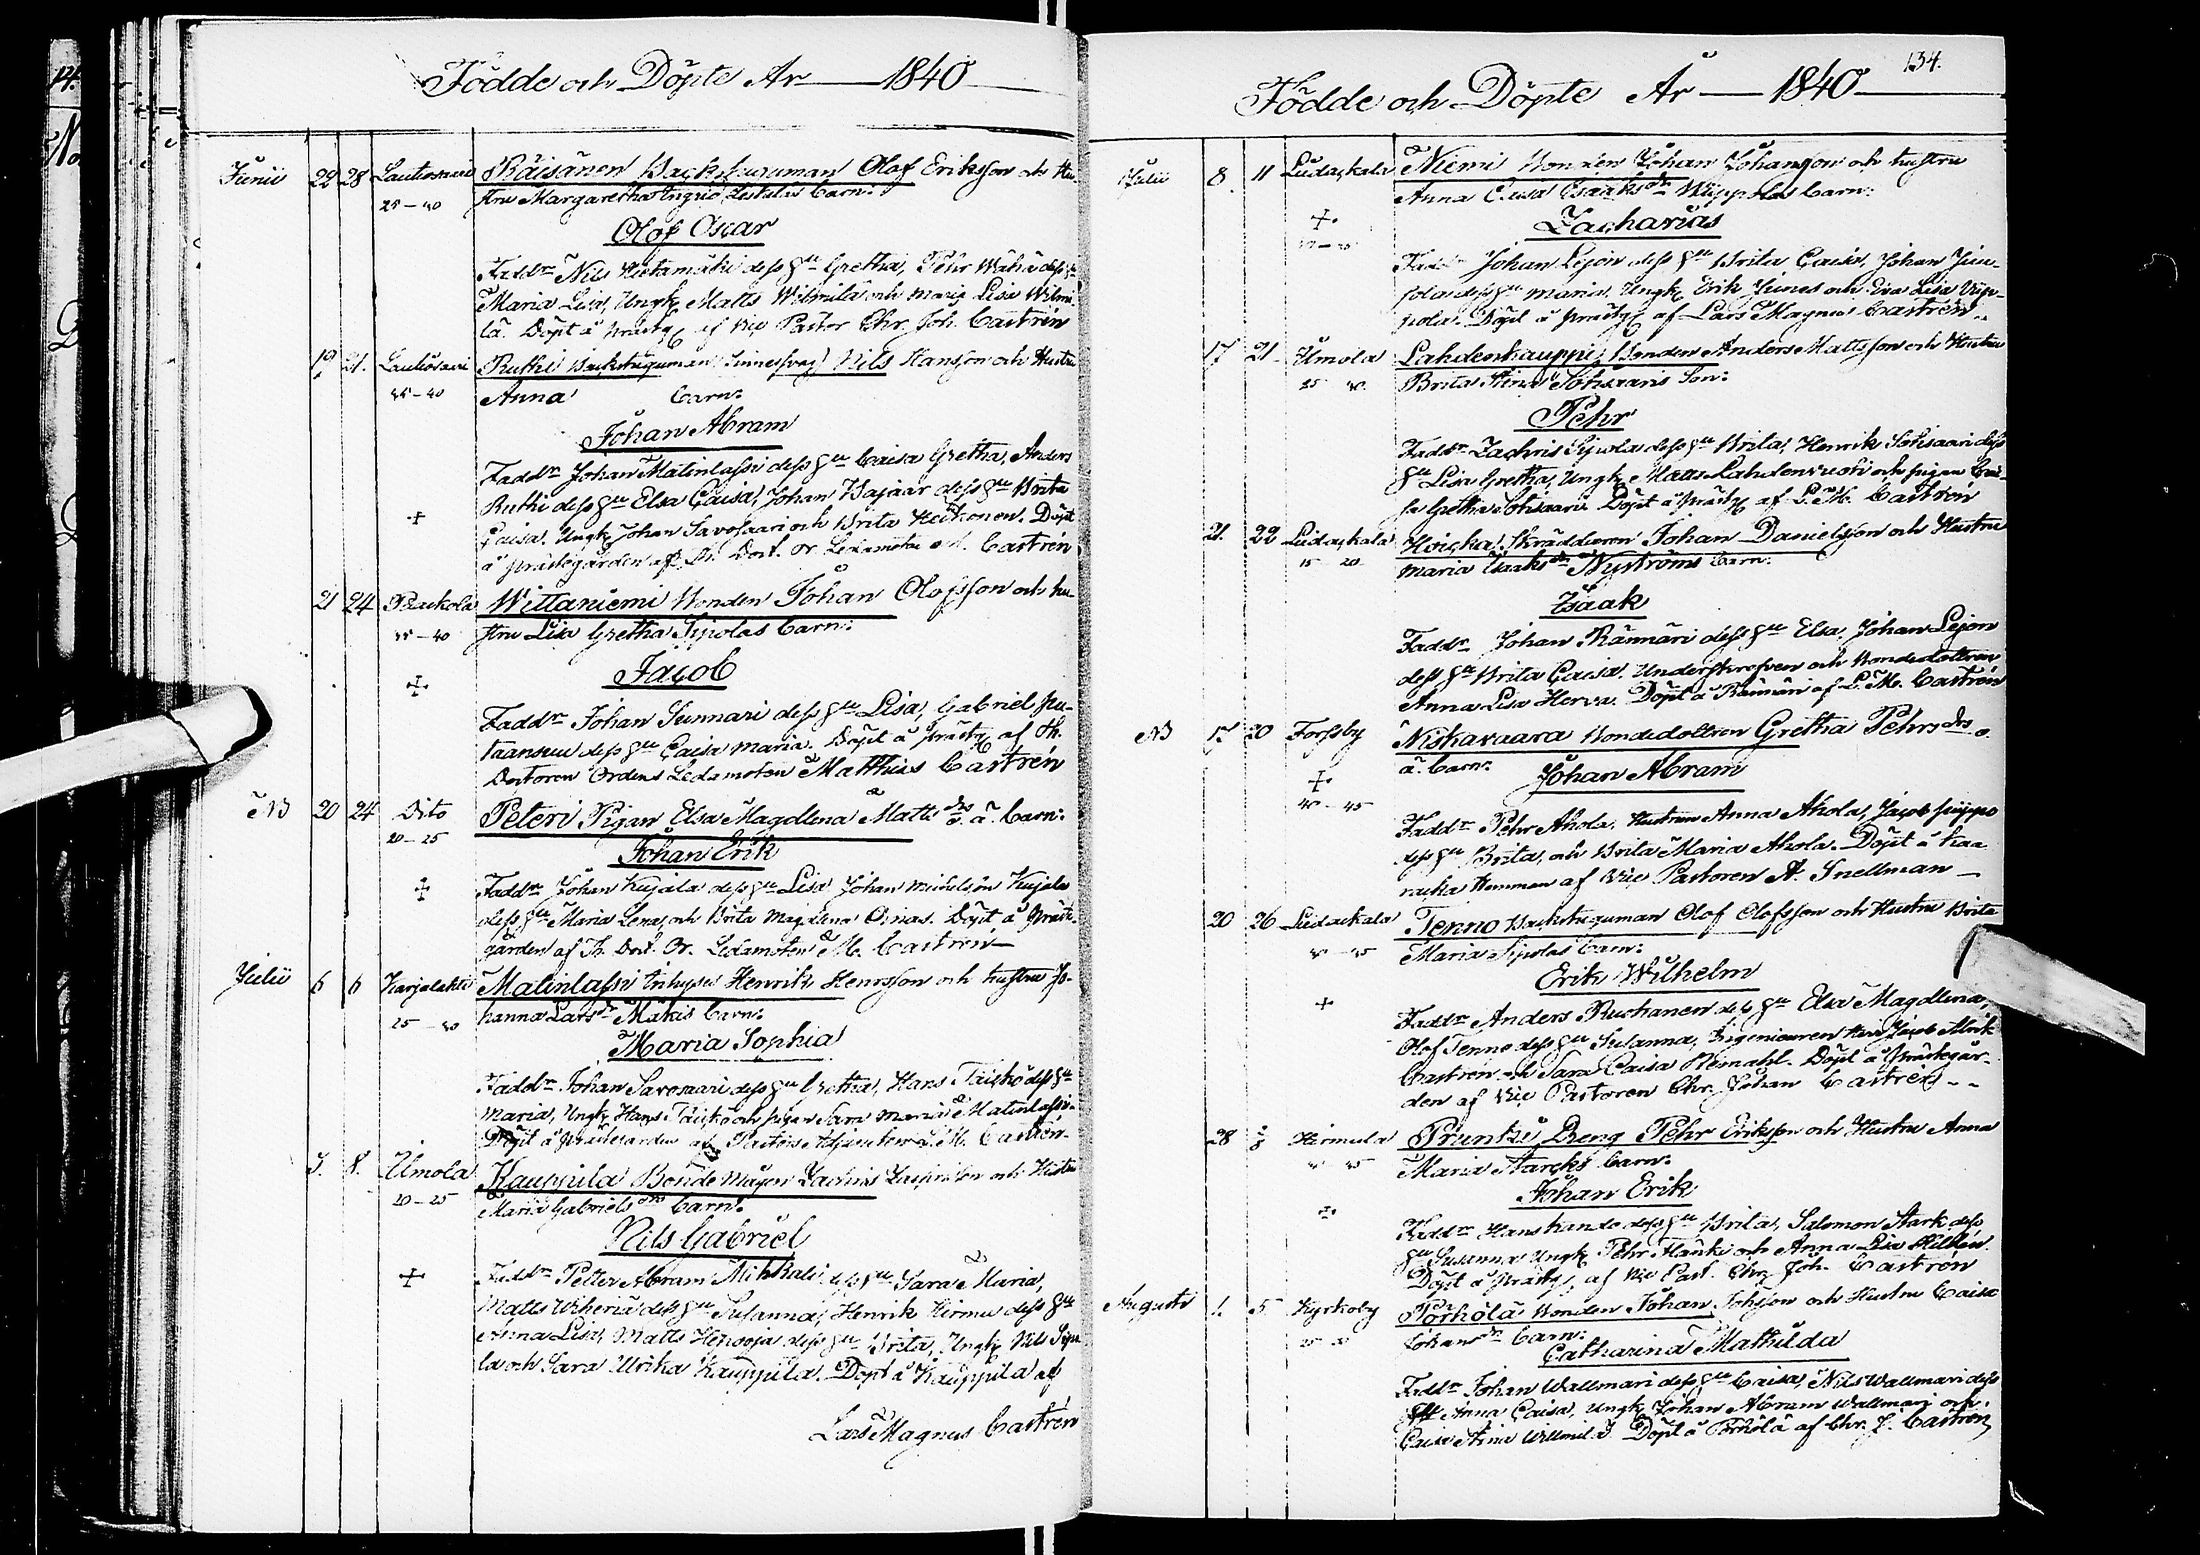 Födde och Döpte År 1840
Junii 22 28 Lautiosaari Räisänen Backstuguman Olof Eriksson och Hu-
25-40 stru Margaretha Ingrid Barn:
Olof Oscar
Faddr Nils Hietamäki dess hu Gretha, Pehr Wähä dess hu
Maria Lisa, Ungk Matts Wilmilä och maria Lisa Wilmi-
lä. Döpt å prästg af Vice Pastor Chr. Joh. Castrén
19 21. Lautiosaari Ruthi Backstuguman Nils Hansson och Hustru
35-40 Anna barn:
Johan Abram
Faddr Johan Malinlassi dess hu Caisa Gretha, Anders
Ruthi dess hu Elsa Caisa, Johan Bajaar dess hu Brita
+ Caisa, Ungk Johan Savosaari och Brita Heikonen. Döpt
å prästegården af Th. Doct. Or. Ledamoten M. Castrén
21 24 Backola Wittaniemi Bonden Johan Olofsson och hu-
35-40 stru Lisa Gretha Sipolas barn:
+ Jacob
Faddr Johan Sunnari dess hu Lisa, Gabriel Pu-
taansuu dess hu Caisa maria. Döpt å prästg af Th.
Doctoren Ordens Ledamoten Matthias Castrén
NB 20 24 Dito Peteri Pigan Elsa Magdlena Matts dr o. ä. barn:
20-25
Johan Erik
+ Faddr Johan Kujala dess hu Lisa Johan Kujala
dess hu Maria Lena, och Brita Magdlena Oinas. Döpt å Präste-
gården af Th. Doct. Or. Ledamoten M. Castrén
Julii 5 6 Karjalahti Malinlassi Inhyses Henrik Henrsson och hustru Jo-
25-30 hanna Lars dr Mäkis barn:
Maria Sophia
Faddr Johan Savosaari dess hu Gretha, Hans Taisko dess hu
maria, Ungk Hans Taisko och pigan Sara maria Malinlassi.
Döpt å prästegården af Pastors Adjuncten L. M. Castrén.
5. 8. Uimola Kauppila Bondemågen Zachris Zachrisson och Hustru
20-25 Maria Gabriels dr barn:
Nils Gabriel
+ Faddr Petter Abram Mihkali dess hu Sara Maria,
Matts Wiheriä dess hu Susanna, Henrik Hirmu dess hu
Anna Lisa, Matts dess hu Brita, Ungk Nils Sipo-
la och Sara Ulrika Kauppila. Döpt å Kauppila af
Lars Magnus Castrén
134.
Födde och Döpte År 1840
Julii 8. 11 Liedackala Niemi Bonden Johan Johansson och hustru
Anna Caisa Isaaks dr barn:
+ Zacharias
Faddr Johan Lejon dess hu Brita Caisa, Johan Juu-
sola dess hu maria, Ungk Erik Juines och Eva Lisa Viip-
pola. Döpt å prästg af Lars Magnus Castrén.
17 21 Uimola Lahdenkauppi, Bonden Anders Mattsson och Hustru
Brita Stina Sohsaaris Son:
Pehr
Faddr Zachris Sipola dess hu Brita, Henrik Sohsaari dess
hu Lisa Gretha, Ungk Matts Lahdenvuoti och pigan Cai-
sa Gretha Sohsaari. Döpt å prästg af L. M. Castrén
21. 22 Liedackala Hoicka, Skräddaren Johan Danielsson och Hustru
15 20 maria Isaaks dr Nyströms barn:
Isaak
Faddr Johan Rännäri dess hu Elsa, Johan Lejon
dess hu Brita Caisa, Underskrefven och Bondedottren
Anna Lisa Herva. Döpt å Rännäri af L. M. Castrén
NB 17 20 Forssby Niskavaara Bondedottren Gretha Pehrsdrs o.
ä. barn: Johan Abram
+
40-45 Faddr Pehr Ahola, Hustrun Anna Ahola, Jacob Piippo
dess hu Brita, och Brita Maria Ahola. Döpt å
hemman af Vice Pastoren A. Snellman
20 26 Liedackala Tenno Backstuguman Olof Olofsson och Hustru Brita
Maria Sipolas barn:
Erik Wilhelm
+ Faddr Anders Ruohanen dess hu Elsa Magdlena,
Olof Tenno dess hu Susanna, Ingenieuren Herr Jacob Alrik
Castrén och Sara Caisa Remahl. Döpt å Prästegår-
den af Vice Pastoren Chr. Johan Castrén
28 Hirmula Pruntzi Dreng Pehr Eriksson och Hustru Anna
Maria Starcks barn:
Johan Erik
+ Faddr Hans Kando dess hu Brita, Salomon Stark dess
hu Susanna Ungk Pehr Hanki och Anna Lisa
Döpt å Prästg, af Vice Past. Chr. Joh. Castrén
Augusti 1. 5 Kyrkoby Pörhölä Bonden Johan Johsson och Hustru Caisa
Johans dr barn:
Catharina Mathilda
Faddr Johan Wallmari dess hu Caisa, Nils Wallmari dess
hu Anna Caisa, Ungk Johan Abram Wallmari och
Caisa Stina Wilmilä. Döpt å Pörhölä af Chr. J. Castrén